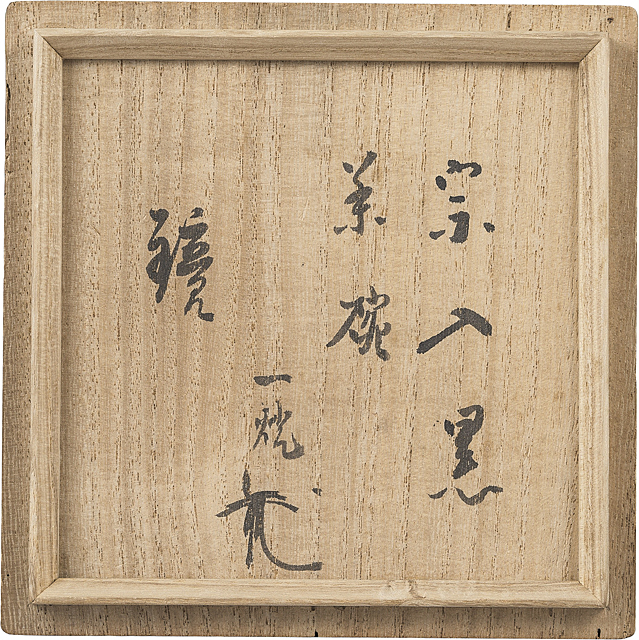 宗入黒
茶碗
一燈
鏡